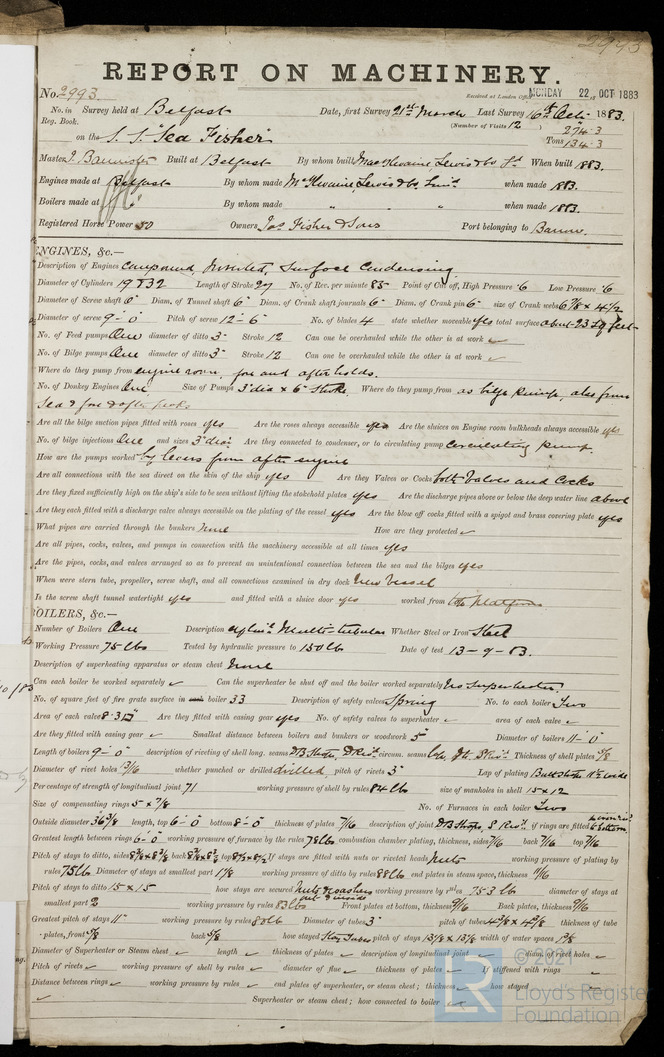 2993
REPORT ON MACHINERY.
No. 2993 Received at London Office MONDAY 22 OCT 1883
No. in Reg. Book. Survey held at Belfast Date, first Survey 21st March Last Survey 16th Oct. 1883.
(Number of Visits 12
on the S. S. "Sea Fisher" Tons 274.3 134.3
Master J. Bannister Built at Belfast By whom built MacIlwaine, Lewis & Co Ld When built 1883.
Engines made at Belfast By whom made MacIlwaine, Lewis & Co Limd. when made 1883.
Boilers made at " By whom made " " when made 1883.
Registered Horse Power 50 Owners Jas Fisher & Sons Port belonging to Barrow.
ENGINES, &c.—
Description of Engines Compound, Inverted, Surface Condensing.
Diameter of Cylinders 19" & 32 Length of Stroke 27 No. of Rev. per minute 85 Point of Cut off, High Pressure .6 Low Pressure .6
Diameter of Screw shaft 6" Diam. of Tunnel shaft 6" Diam. of Crank shaft journals 6" Diam. of Crank pin 6" size of Crank webs 6 7/8 x 4 1/2
Diameter of screw 9-0 Pitch of screw 12-6 No. of blades 4 state whether moveable yes total surface about 23 sq feet
No. of Feed pumps One diameter of ditto 3" Stroke 12 Can one be overhauled while the other is at work ✓
No. of Bilge pumps One diameter of ditto 3" Stroke 12 Can one be overhauled while the other is at work ✓
Where do they pump from engine room, fore and after holds.
No. of Donkey Engines One Size of Pumps 3" dia x 6" Stroke Where do they pump from as bilge pump, also from
sea & fore & after peaks
Are all the bilge suction pipes fitted with roses yes Are the roses always accessible yes Are the sluices on Engine room bulkheads always accessible yes
No. of bilge injections One and sizes 3" dia. Are they connected to condenser, or to circulating pump circulating pump.
How are the pumps worked by levers from after engine
Are all connections with the sea direct on the skin of the ship yes Are they Valves or Cocks both Valves and Cocks
Are they fixed sufficiently high on the ship's side to be seen without lifting the stokehold plates yes Are the discharge pipes above or below the deep water line above
Are they each fitted with a discharge valve always accessible on the plating of the vessel yes Are the blow off cocks fitted with a spigot and brass covering plate yes
What pipes are carried through the bunkers none How are they protected ✓
Are all pipes, cocks, valves, and pumps in connection with the machinery accessible at all times yes
Are the pipes, cocks, and valves arranged so as to prevent an unintentional connection between the sea and the bilges yes
When were stern tube, propeller, screw shaft, and all connections examined in dry dock New Vessel
Is the screw shaft tunnel watertight yes and fitted with a sluice door yes worked from top platform
BOILERS, &c.—
Number of Boilers One Description Cylin. Multi-tubular Whether Steel or Iron Steel
Working Pressure 75 lbs Tested by hydraulic pressure to 150 lb Date of test 13-9-83.
Description of superheating apparatus or steam chest None
Can each boiler be worked separately ✓ Can the superheater be shut off and the boiler worked separately No Superheater.
No. of square feet of fire grate surface in each boiler 33 Description of safety valves Spring No. to each boiler Two
Area of each valve 8.3 Are they fitted with easing gear yes No. of safety valves to superheater ✓ area of each valve ✓
Are they fitted with easing gear ✓ Smallest distance between boilers and bunkers or woodwork 5" Diameter of boilers 11-0
Length of boilers 9-0 description of riveting of shell long. seams circum. seams Thickness of shell plates 5/8
Diameter of rivet holes 13/16 whether punched or drilled drilled pitch of rivets 3" Lap of plating
Percentage of strength of longitudinal joint 71 working pressure of shell by rules 84 lb size of manholes in shell 15 x 12
Size of compensating rings 5 x 7/8 No. of Furnaces in each boiler Two
Outside diameter length, top 6-0 bottom 8-0 thickness of plates 7/16 description of joint if rings are fitted
Greatest length between rings 6-0 working pressure of furnace by the rules 78 lb combustion chamber plating, thickness, sides 7/16 back 7/16 top 7/16
Pitch of stays to ditto, sides back top If stays are fitted with nuts or riveted heads Nuts working pressure of plating by
rules 75 lb Diameter of stays at smallest part 1 1/8 working pressure of ditto by rules 88 lb end plates in steam space, thickness 11/16
Pitch of stays to ditto 15 x 15 how stays are secured nuts & washers working pressure by rules 75.3 lb diameter of stays at
smallest part 2 working pressure by rules 83 lb Front plates at bottom, thickness 9/16 Back plates, thickness 9/16
Greatest pitch of stays 11" working pressure by rules 80 lb Diameter of tubes 3" pitch of tubes 4 3/8 x 4 3/8 thickness of tube
plates, front 5/8 back 5/8 how stayed Stay Tubes pitch of stays 13 1/8 x 13 1/8 width of water spaces
Diameter of Superheater or Steam chest ✓ length ✓ thickness of plates ✓ description of longitudinal joint ✓ diam. of rivet holes ✓
Pitch of rivets ✓ working pressure of shell by rules ✓ diameter of flue ✓ thickness of plates ✓ If stiffened with rings ✓
Distance between rings ✓ working pressure by rules ✓ end plates of superheater, or steam chest; thickness ✓ how stayed ✓
✓ Superheater or steam chest; how connected to boiler ✓
© 2021
Lloyd's Register
Foundation